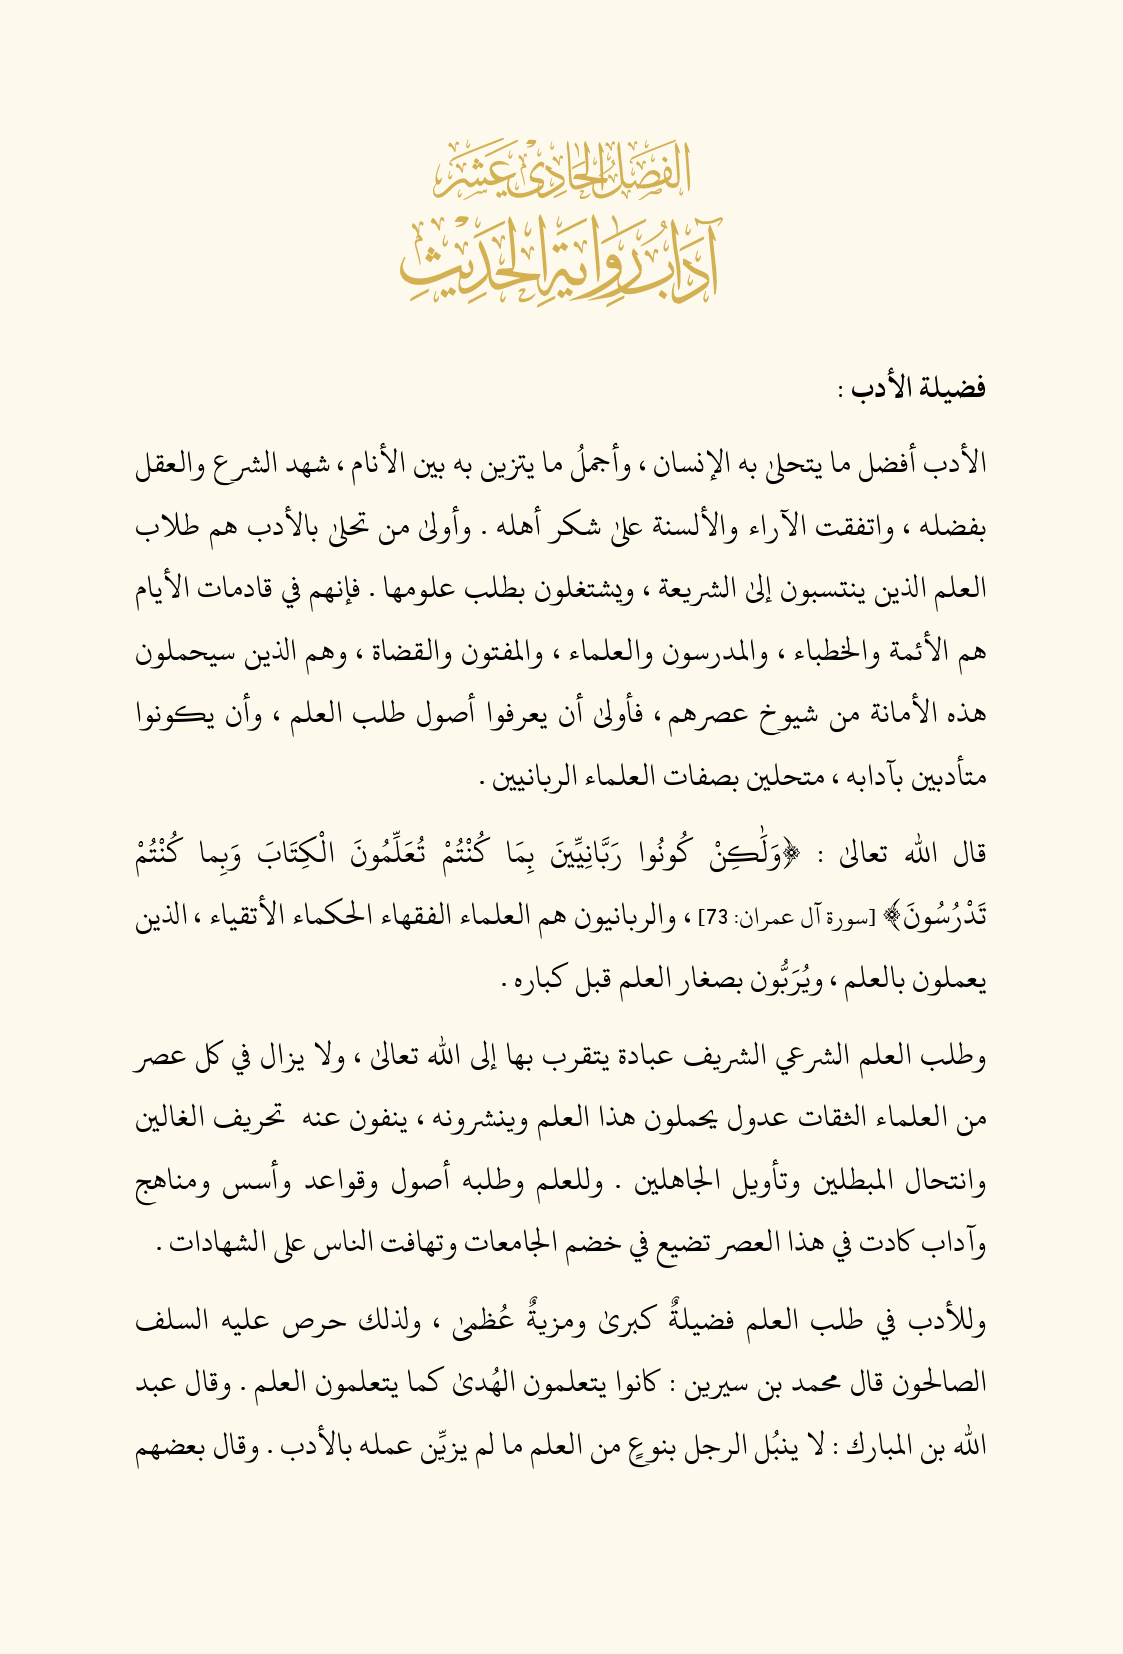 الفَصْلُ الحَادِيْ عَشَر
آدَابُ رِوَايَةِ الحَدِيْثِ
فضيلة الأدب :
الأدب أفضل ما يتحلىٰ به الإنسان ، وأجملُ ما يتزين به بين الأنام ، شهد الشرع والعقل
بفضله ، واتفقت الآراء والألسنة علىٰ شكر أهله . وأولىٰ من تحلىٰ بالأدب هم طلاب
العلم الذين ينتسبون إلىٰ الشريعة ، ويشتغلون بطلب علومها . فإنهم في قادمات الأيام
هم الأئمة والخطباء ، والمدرسون والعلماء ، والمفتون والقضاة ، وهم الذين سيحملون
هذه الأمانة من شيوخ عصرهم ، فأولىٰ أن يعرفوا أصول طلب العلم ، وأن يكونوا
متأدبين بآدابه ، متحلين بصفات العلماء الربانيين .
قال الله تعالىٰ : ﴿وَلَٰكِنْ كُونُوا رَبَّانِيِّينَ بِمَا كُنْتُمْ تُعَلِّمُونَ الْكِتَابَ وَبِما كُنْتُمْ
تَدْرُسُونَ﴾ [سورة آل عمران: 73] ، والربانيون هم العلماء الفقهاء الحكماء الأتقياء ، الذين
يعملون بالعلم ، ويُرَبُّون بصغار العلم قبل كباره .
وطلب العلم الشرعي الشريف عبادة يتقرب بها إلى الله تعالىٰ ، ولا يزال في كل عصر
من العلماء الثقات عدول يحملون هذا العلم وينشرونه ، ينفون عنه تحريف الغالين
وانتحال المبطلين وتأويل الجاهلين . وللعلم وطلبه أصول وقواعد وأسس ومناهج
وآداب كادت في هذا العصر تضيع في خضم الجامعات وتهافت الناس على الشهادات .
وللأدب في طلب العلم فضيلةٌ كبرىٰ ومزيةٌ عُظمىٰ ، ولذلك حرص عليه السلف
الصالحون قال محمد بن سيرين : كانوا يتعلمون الهُدىٰ كما يتعلمون العلم . وقال عبد
الله بن المبارك : لا ينبُل الرجل بنوعٍ من العلم ما لم يزيِّن عمله بالأدب . وقال بعضهم